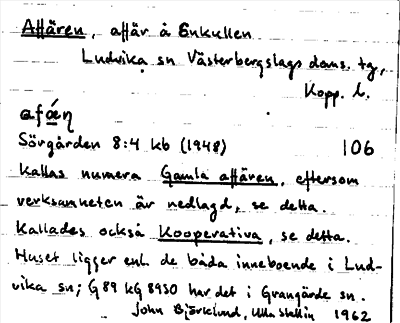 Affären, affär å Enkullen
Ludvika sn Västerbergslags doms. tg,
Kopp. l.
afǽη
Sörgården 8:4 kb (1948) 106
Kallas numera Gamla affären, eftersom
verksamheten är nedlagd, se detta.
Kallades också Kooperativa, se detta.
Huset ligger enl. de båda inneboende i Lud-
vika sn; G 89 kG 8950 har det i Grangärde sn.
John Björklund, Ulla Stellin 1962